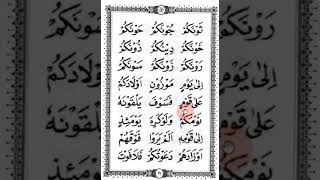 تَوْنَكُمْ جُوْنَكُمْ حَوْنَكُمْ
خَوْنَكُمْ دِيْنُكُمْ
رَوْنَكُمْ زَوْنَكُمْ
اِلٰى يَوْمِ مَوْزُوْنٍ اَوْلَادُكُمْ
عَلٰى قَوْمٍ فَسَوْفَ يَلْقَوْنَهٗ
نَوْمَكُمْ وَلَوْكَرِهَ يَوْمَئِذٍ
اِلٰى قَوْمِهٖ اَلَمْ يَرَوْا فَوْقَهُمْ
اَوْزَارَهُمْ دَعَوْتُكُمْ فَلَا فَوْتَ